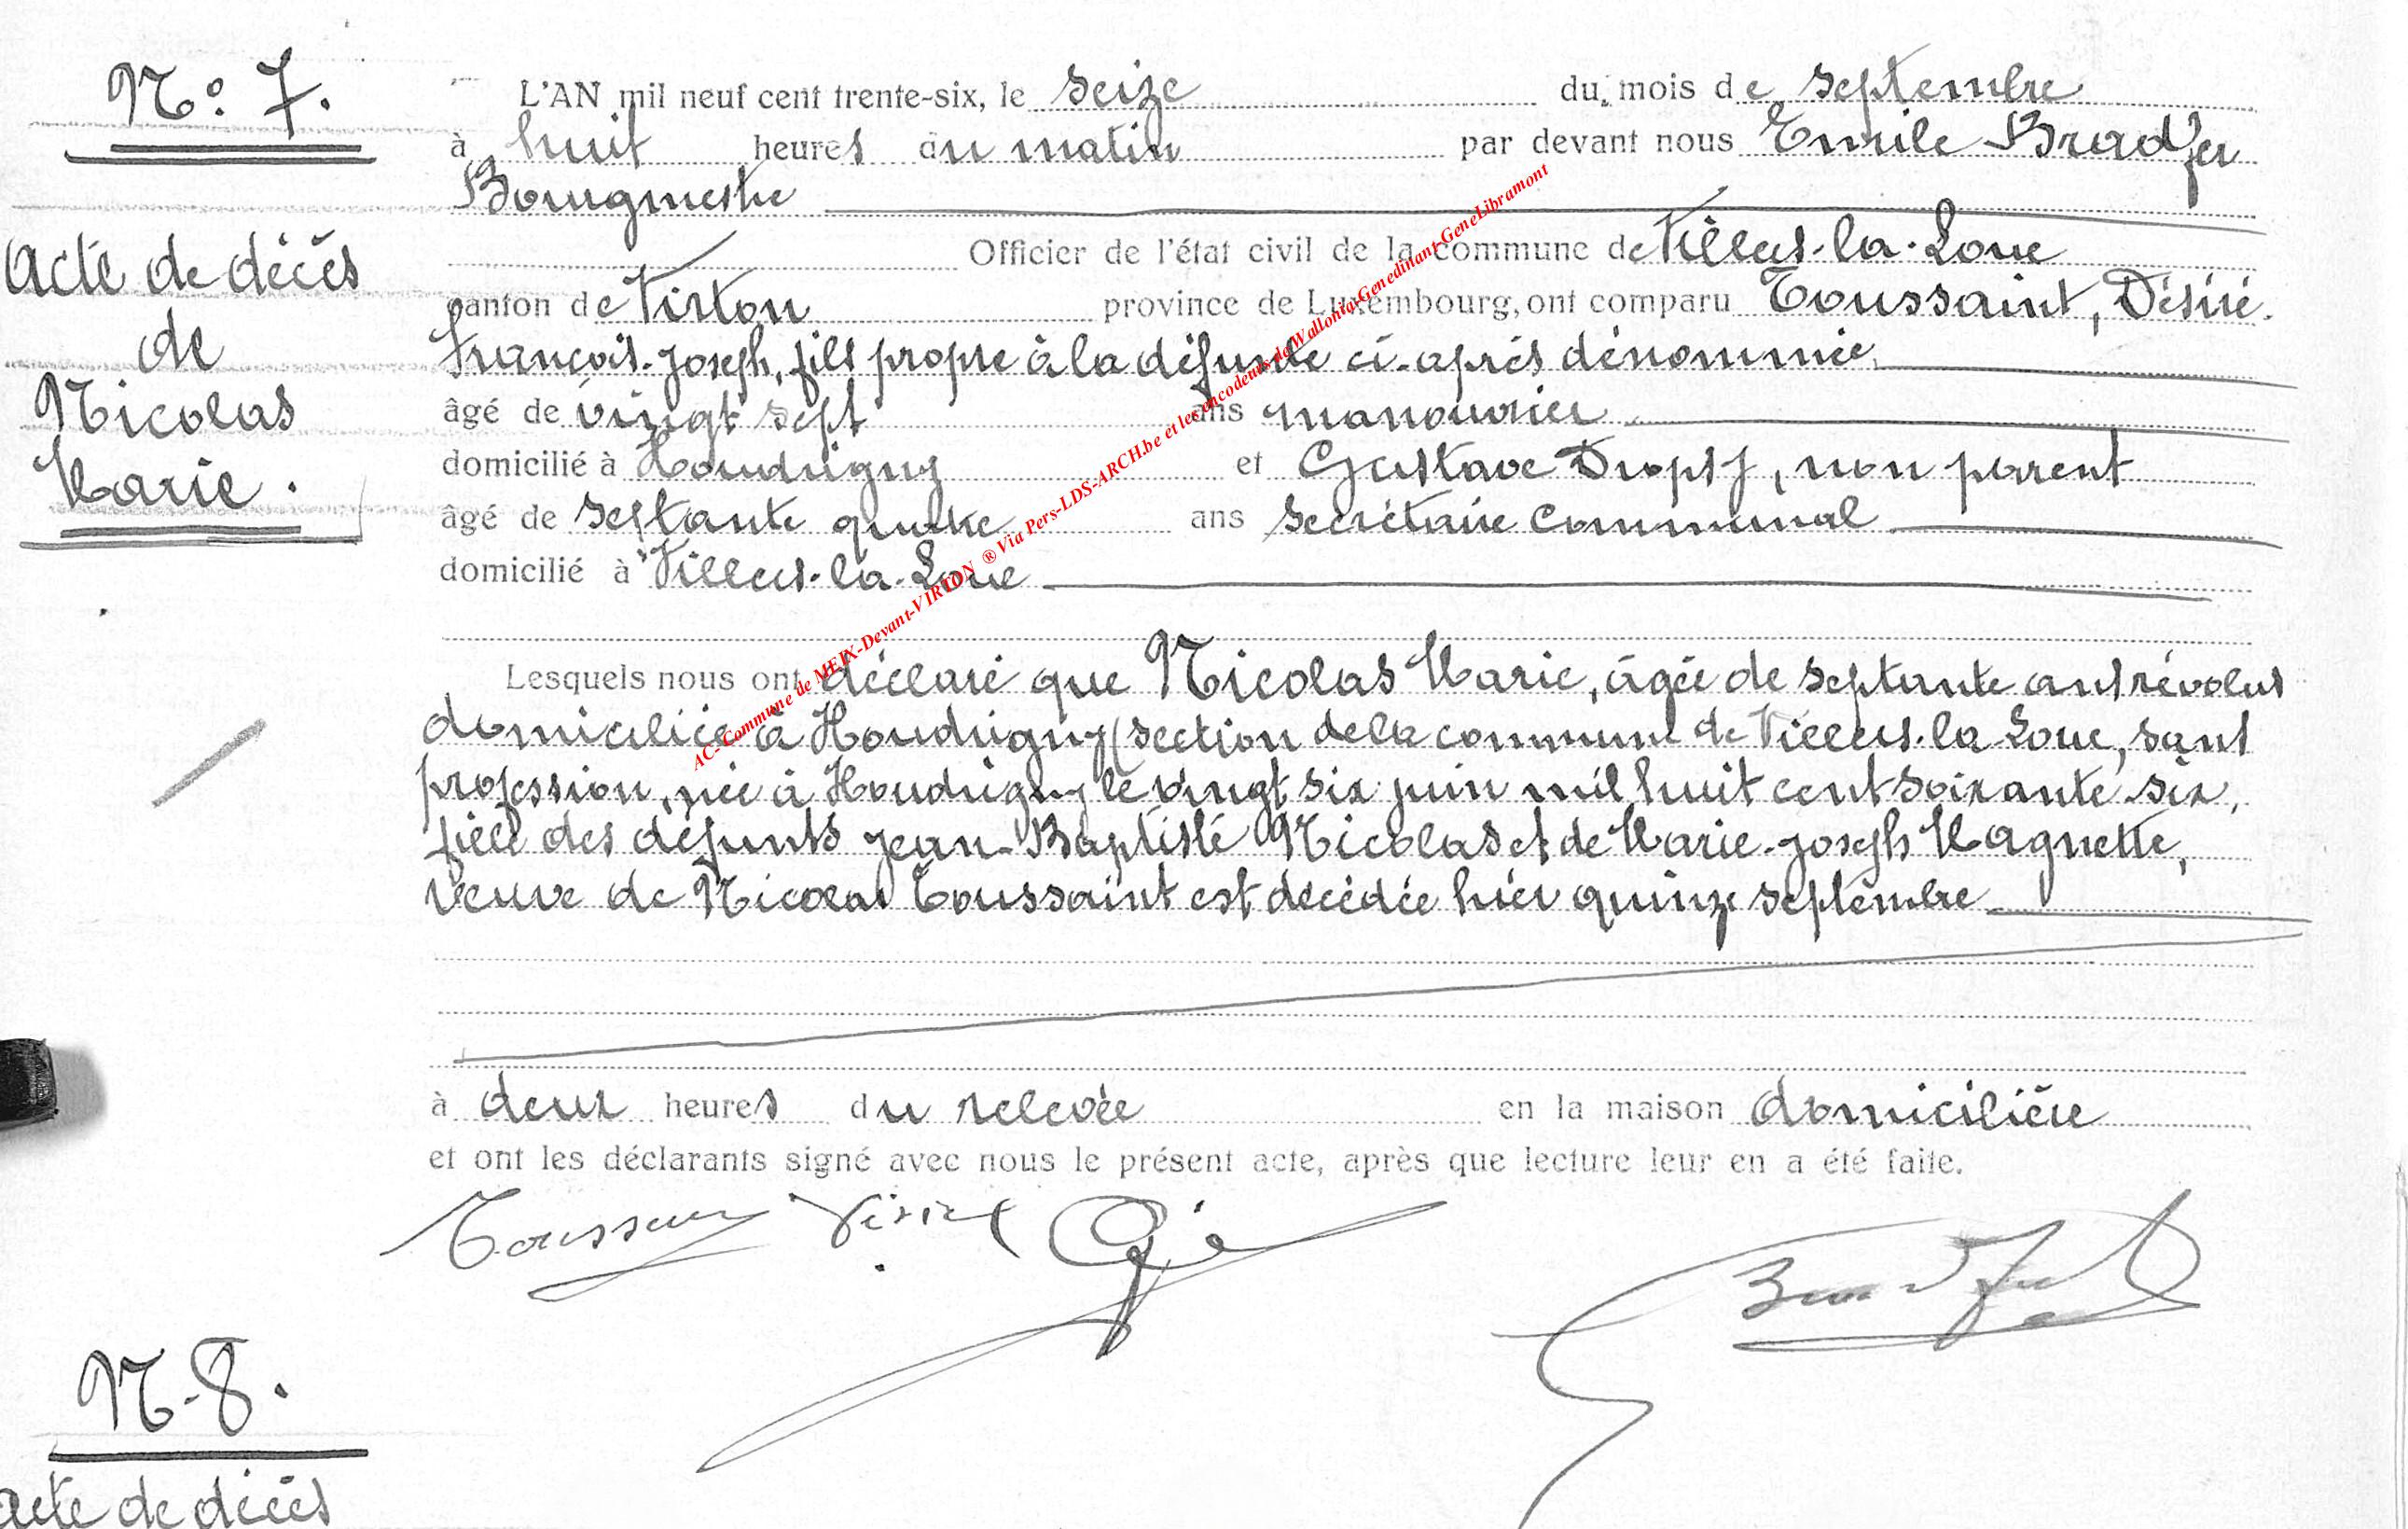 N° 7.
Acte de décès
de
Nicolas
Marie.
L'AN mil neuf cent trente-six, le seize du mois de septembre
à huit heures du matin par devant nous Emile Bradfer
Bourgmestre
Officier de l'état civil de la commune de Villers-la-Loue
canton de Virton province de Luxembourg, ont comparu Toussaint, Désiré.
François-Joseph, fils propre à la défunte ci-après dénommée,
âgé de vingt sept ans manouvrier
domicilié à Houdrigny et Gustave Dropsy, non parent
âgé de septante quatre ans secrétaire communal
domicilié à Villers-la-Loue
Lesquels nous ont déclaré que Nicolas Marie, âgée de septante ans révolus
domiciliée à Houdrigny (section de la commune de Villers-la-Loue, sans
profession, née à Houdrigny le vingt six juin mil huit cent soixante six,
fille des défunts Jean-Baptiste Nicolas et de Marie-Joseph Magnette,
veuve de Nicolas Toussaint est décédée hier quinze septembre
à deux heures du relevée en la maison domicilière
et ont les déclarants signé avec nous le présent acte, après que lecture leur en a été faite.
Toussaint Désiré
Bradfer
AC - Commune de MEIX-Devant-VIRTON ® Via Pers-LDS-ARCH.be et les encodeurs de Wallonia-Genedinant-GeneLibramont
N-8.
Acte de décès